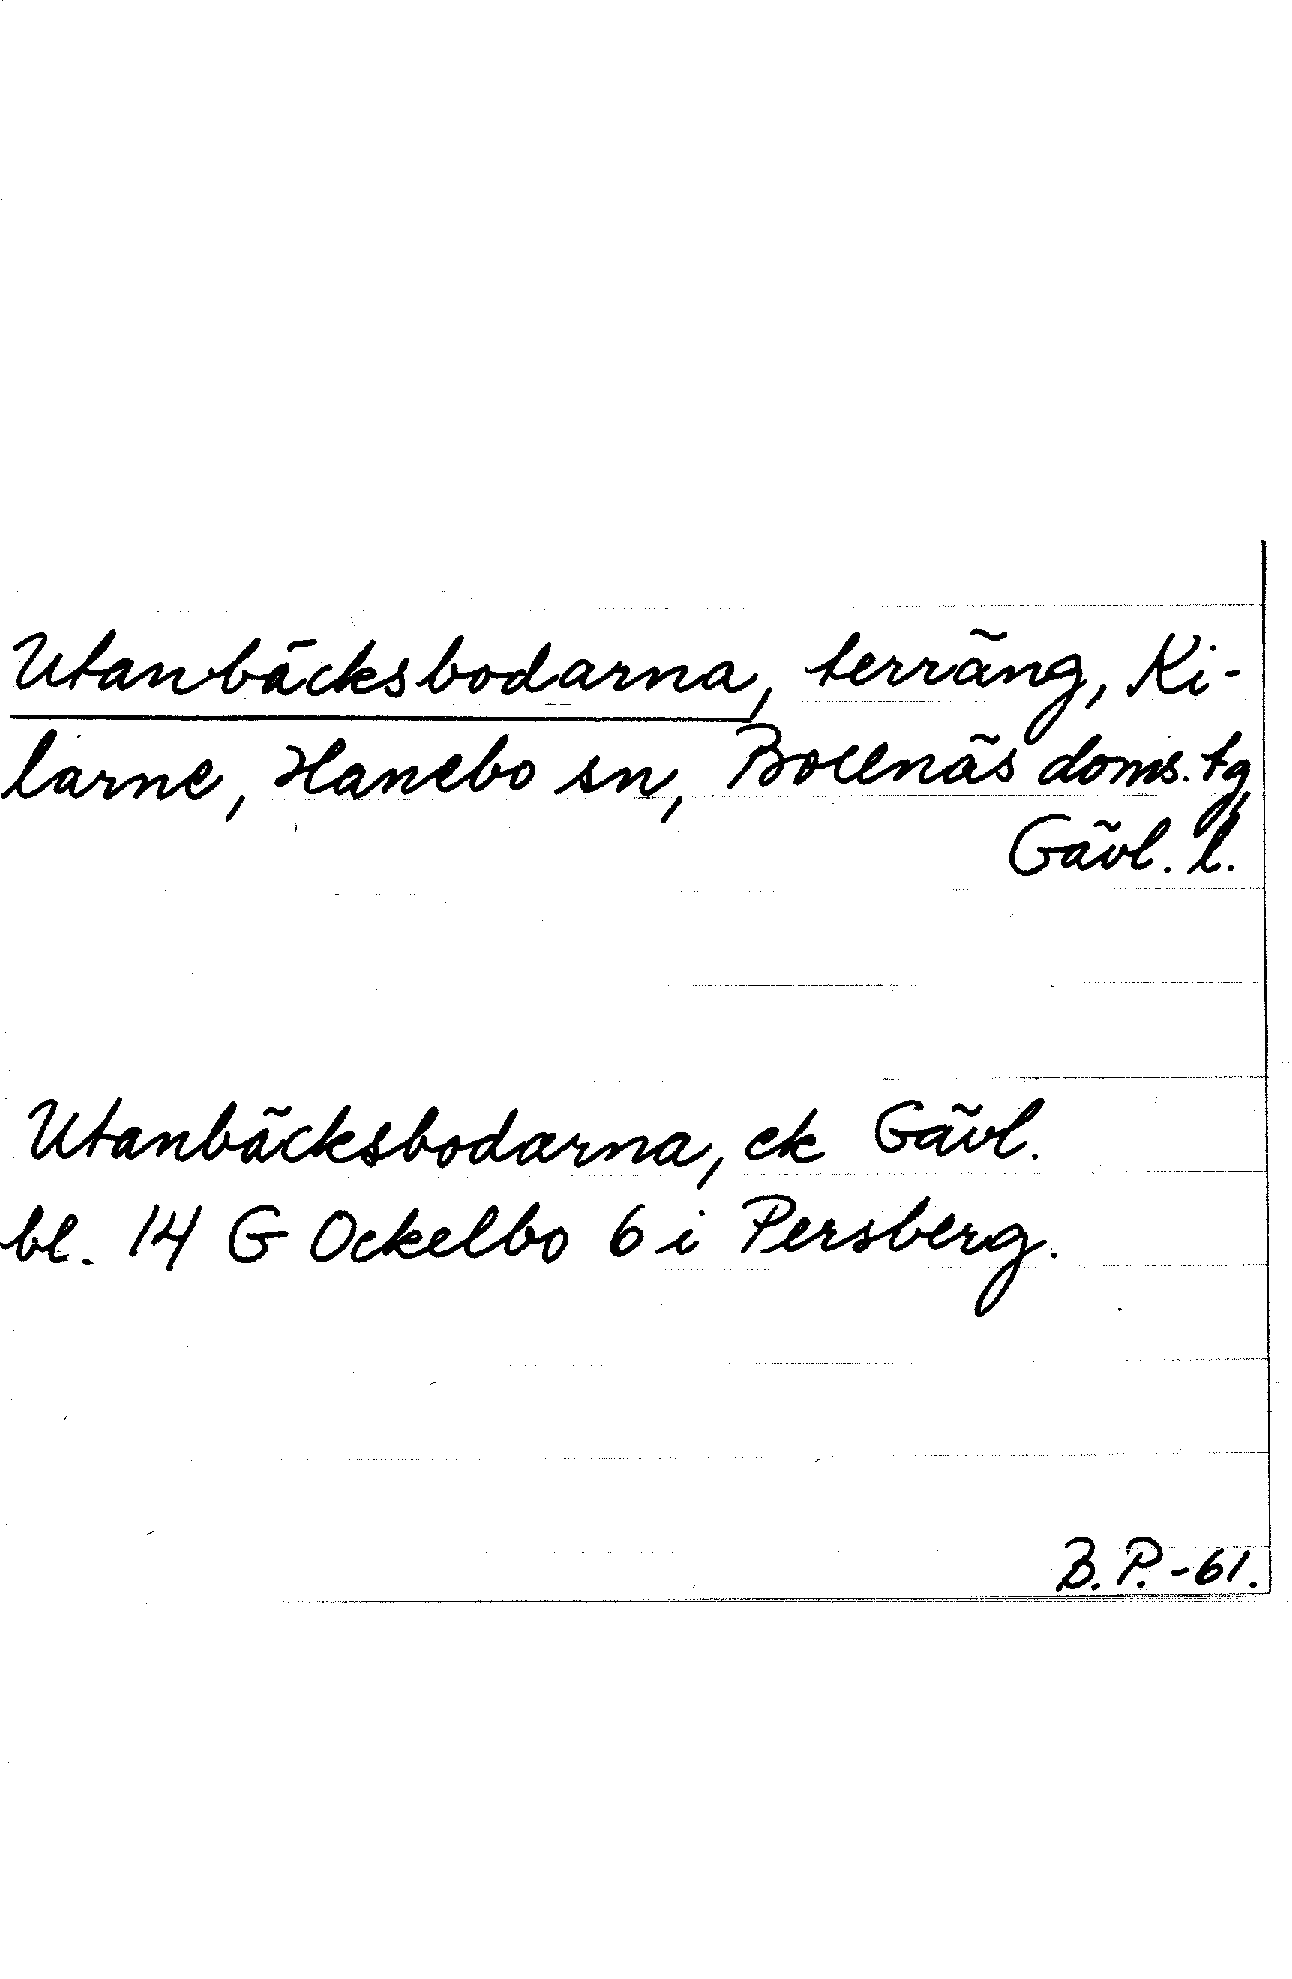 Utanbäcksbodarna, terräng, Ki-
larne, Hanebo sn, Bollnäs doms. tg
Gävl. l.
Utanbäcksbodarna, ek Gävl.
bl. 14 G Ockelbo 6 i Persberg.
B. P. -61.